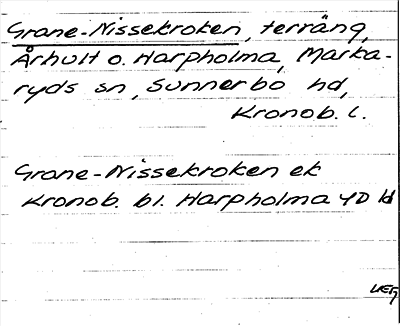 Grane-Nissekroken, terräng,
Århult o. Harpholma, Marka-
ryds sn, Sunnerbo hd,
Kronob. l.
Grane-Nissekroken ek
Kronob. bl. Harpholma 4D